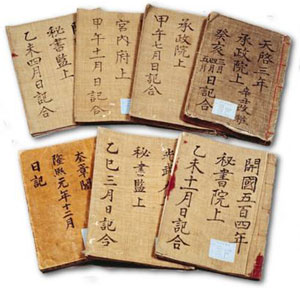 天啓三年
承政院上
癸亥三月四月五月日記合
承政院上
甲午七月日記合
宮內府上
甲午十一月日記合
開
秘書監上
乙未四月日記合
開國五百四年
秘書院上
乙未十月日記合
光武
秘書監上
乙巳三月日記合
奎章閣
隆熙元年十二月
日記